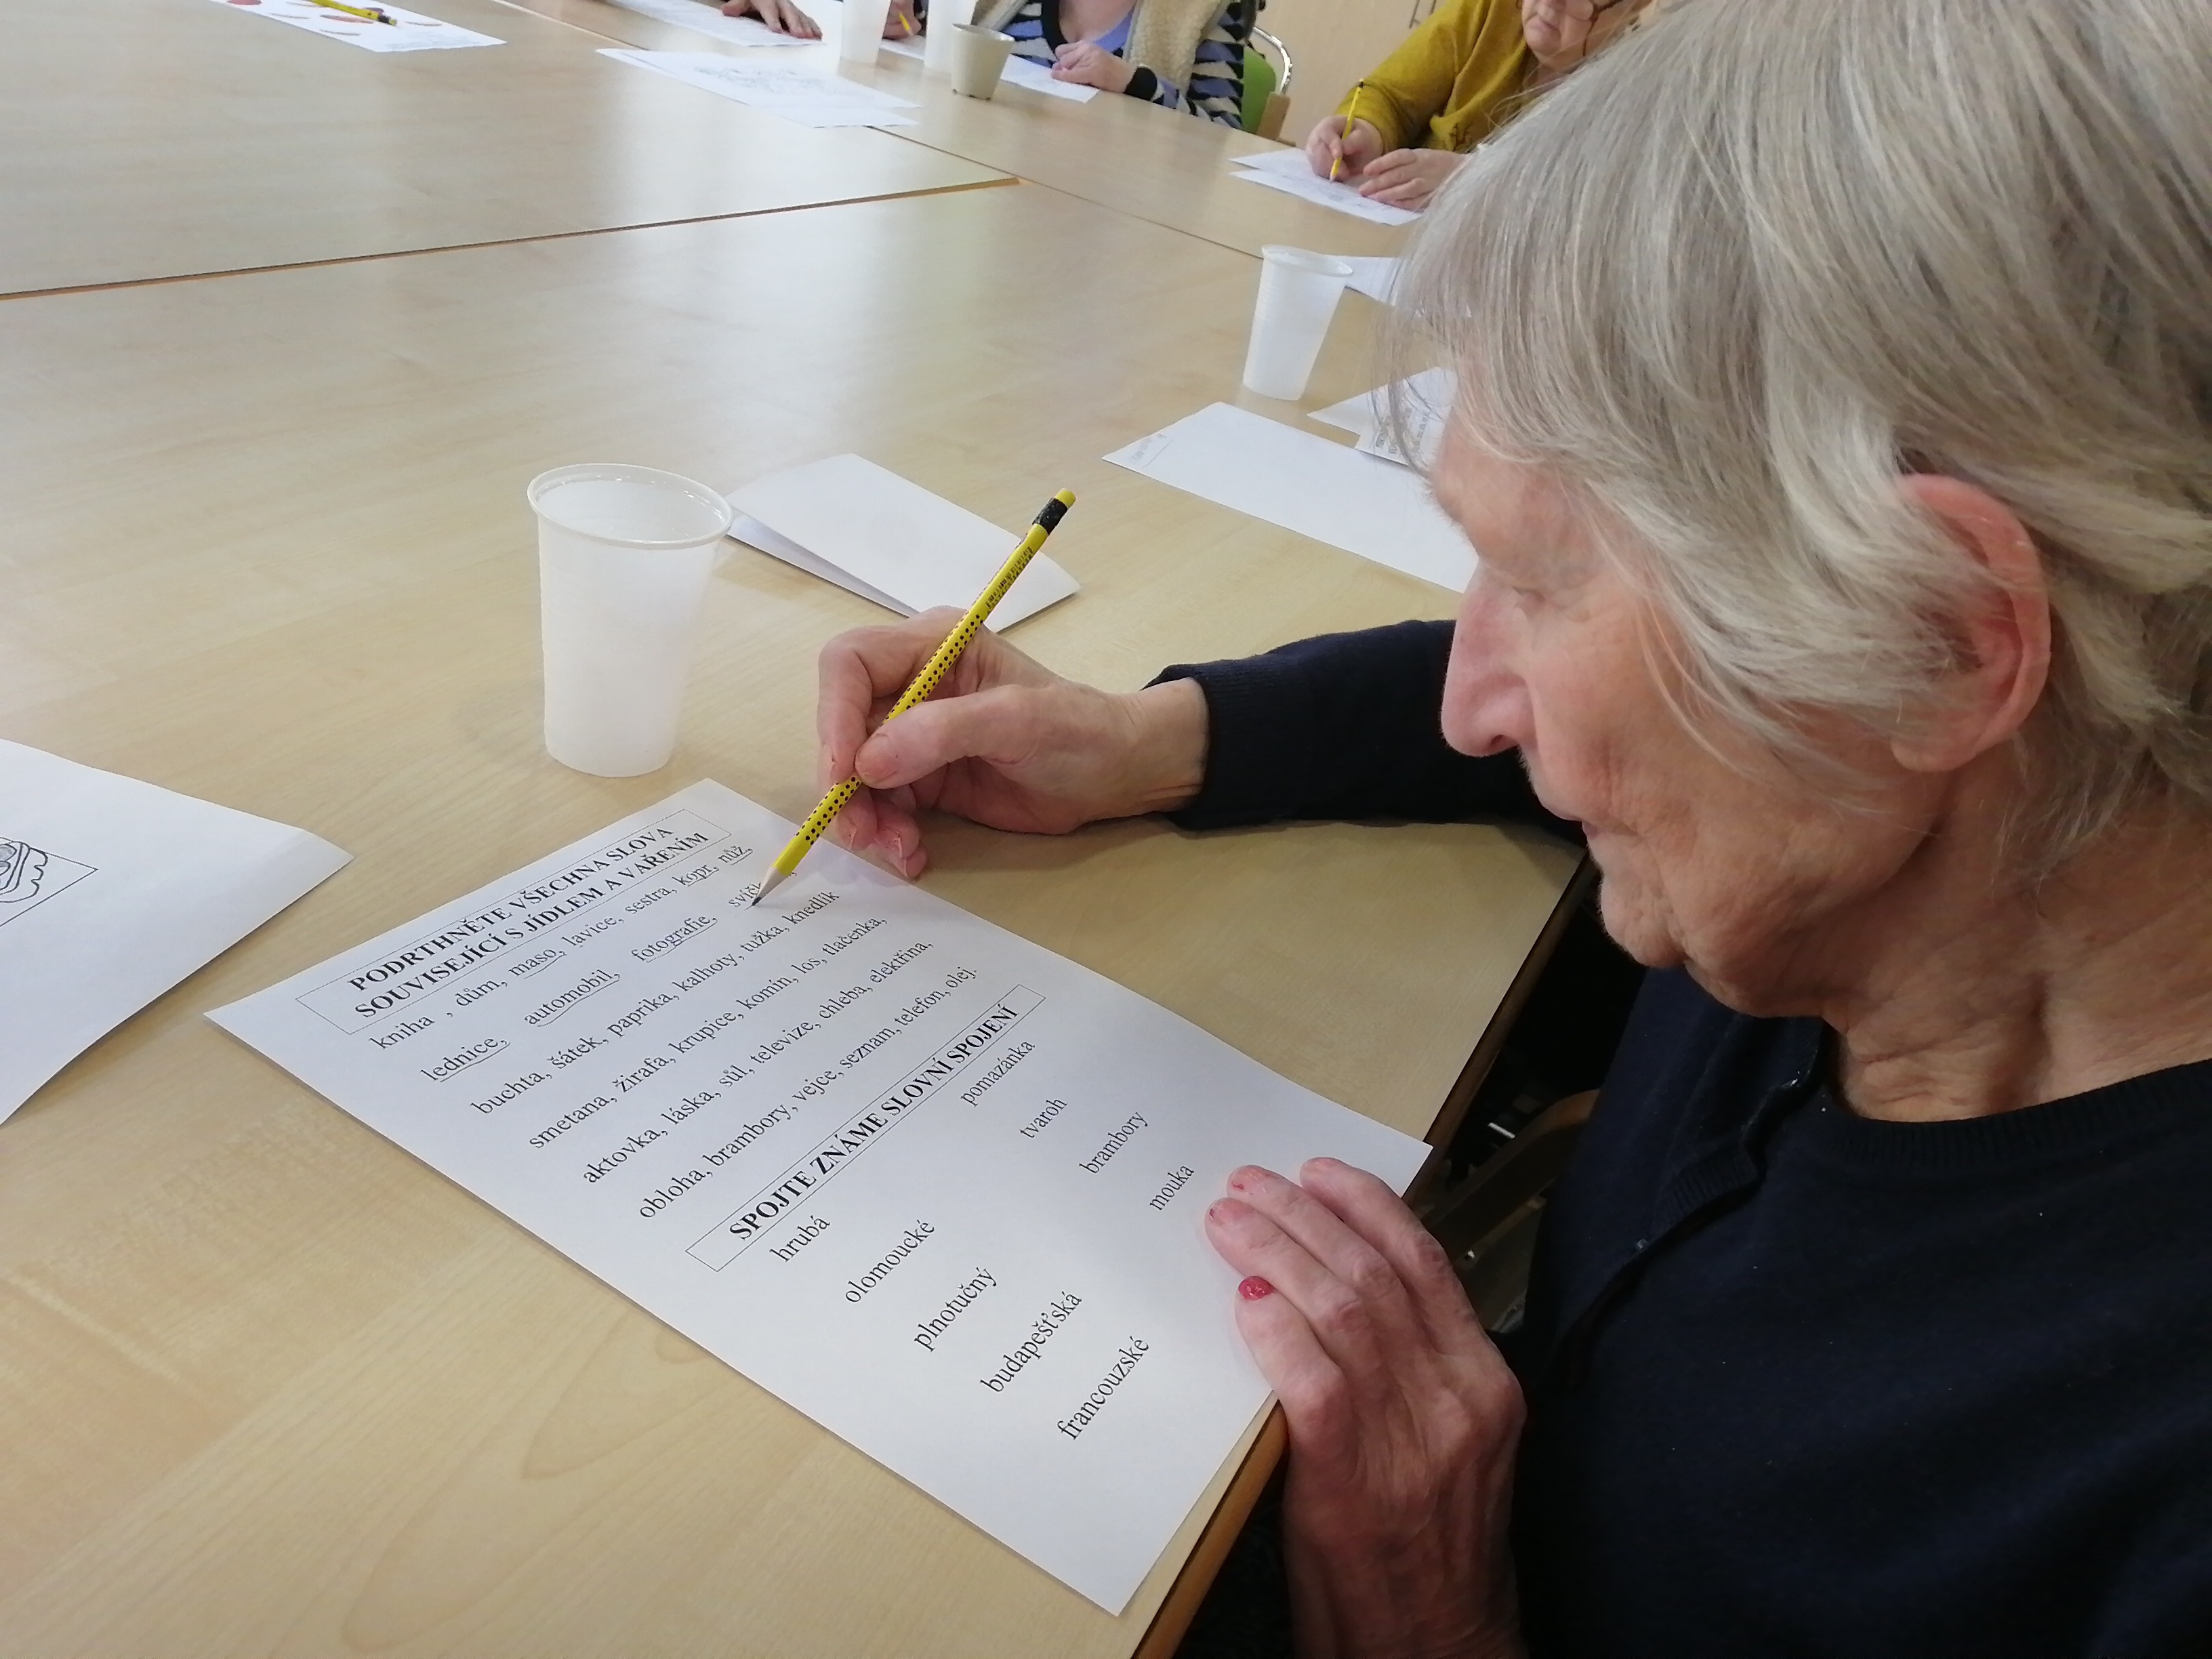 PODRTHNĚTE VŠECHNA SLOVA
SOUVISEJÍCÍ S JÍDLEM A VAŘENÍM
kniha , dům, maso, lavice, sestra, kopr, nůž,
lednice, automobil, fotografie,
buchta, šátek, paprika, kalhoty, tužka, knedlík
smetana, žirafa, krupice, komín, los, tlačenka,
aktovka, láska, sůl, televize, chleba, elektřina,
obloha, brambory, vejce, seznam, telefon, olej.
SPOJTE ZNÁME SLOVNÍ SPOJENÍ
hrubá pomazánka
olomoucké tvaroh
plnotučný brambory
budapešťská mouka
francouzské